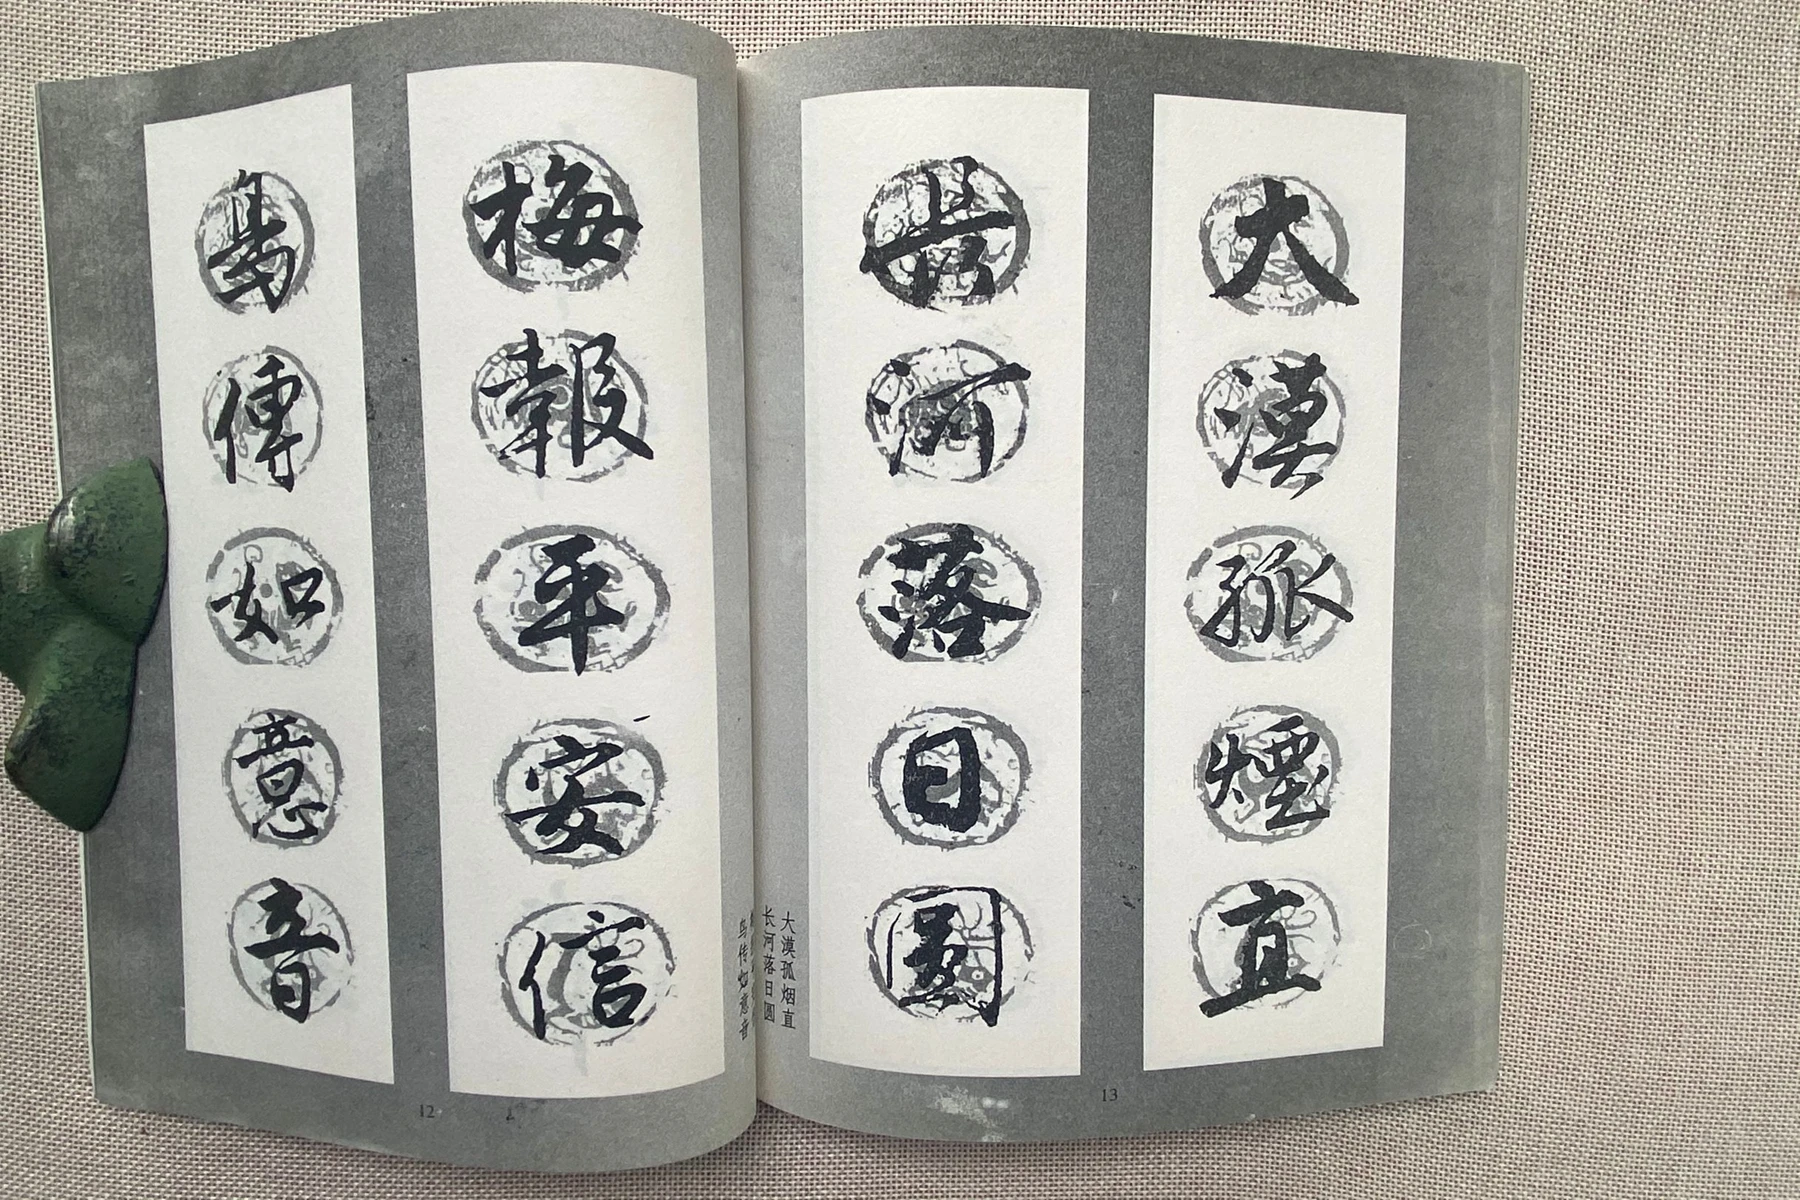 梅報平安信
鳥傳如意音
鸟传如意音
12
大漠孤煙直
長河落日圓
大漠孤烟直
长河落日圆
13